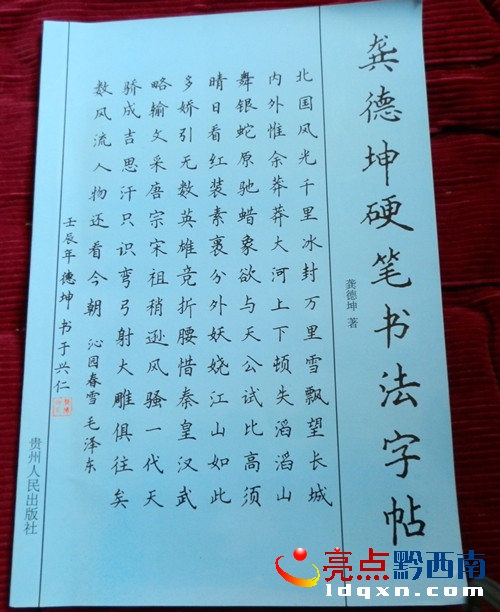 龚德坤硬笔书法字帖
龚德坤 著
北国风光千里冰封万里雪飘望长城
内外惟余莽莽大河上下顿失滔滔山
舞银蛇原驰蜡象欲与天公试比高须
晴日看红装素裹分外妖娆江山如此
多娇引无数英雄竞折腰惜秦皇汉武
略输文采唐宗宋祖稍逊风骚一代天
骄成吉思汗只识弯弓射大雕俱往矣
数风流人物还看今朝 沁园春雪 毛泽东
壬辰年德坤书于兴仁
贵州人民出版社
亮点黔西南
ldqxn.com